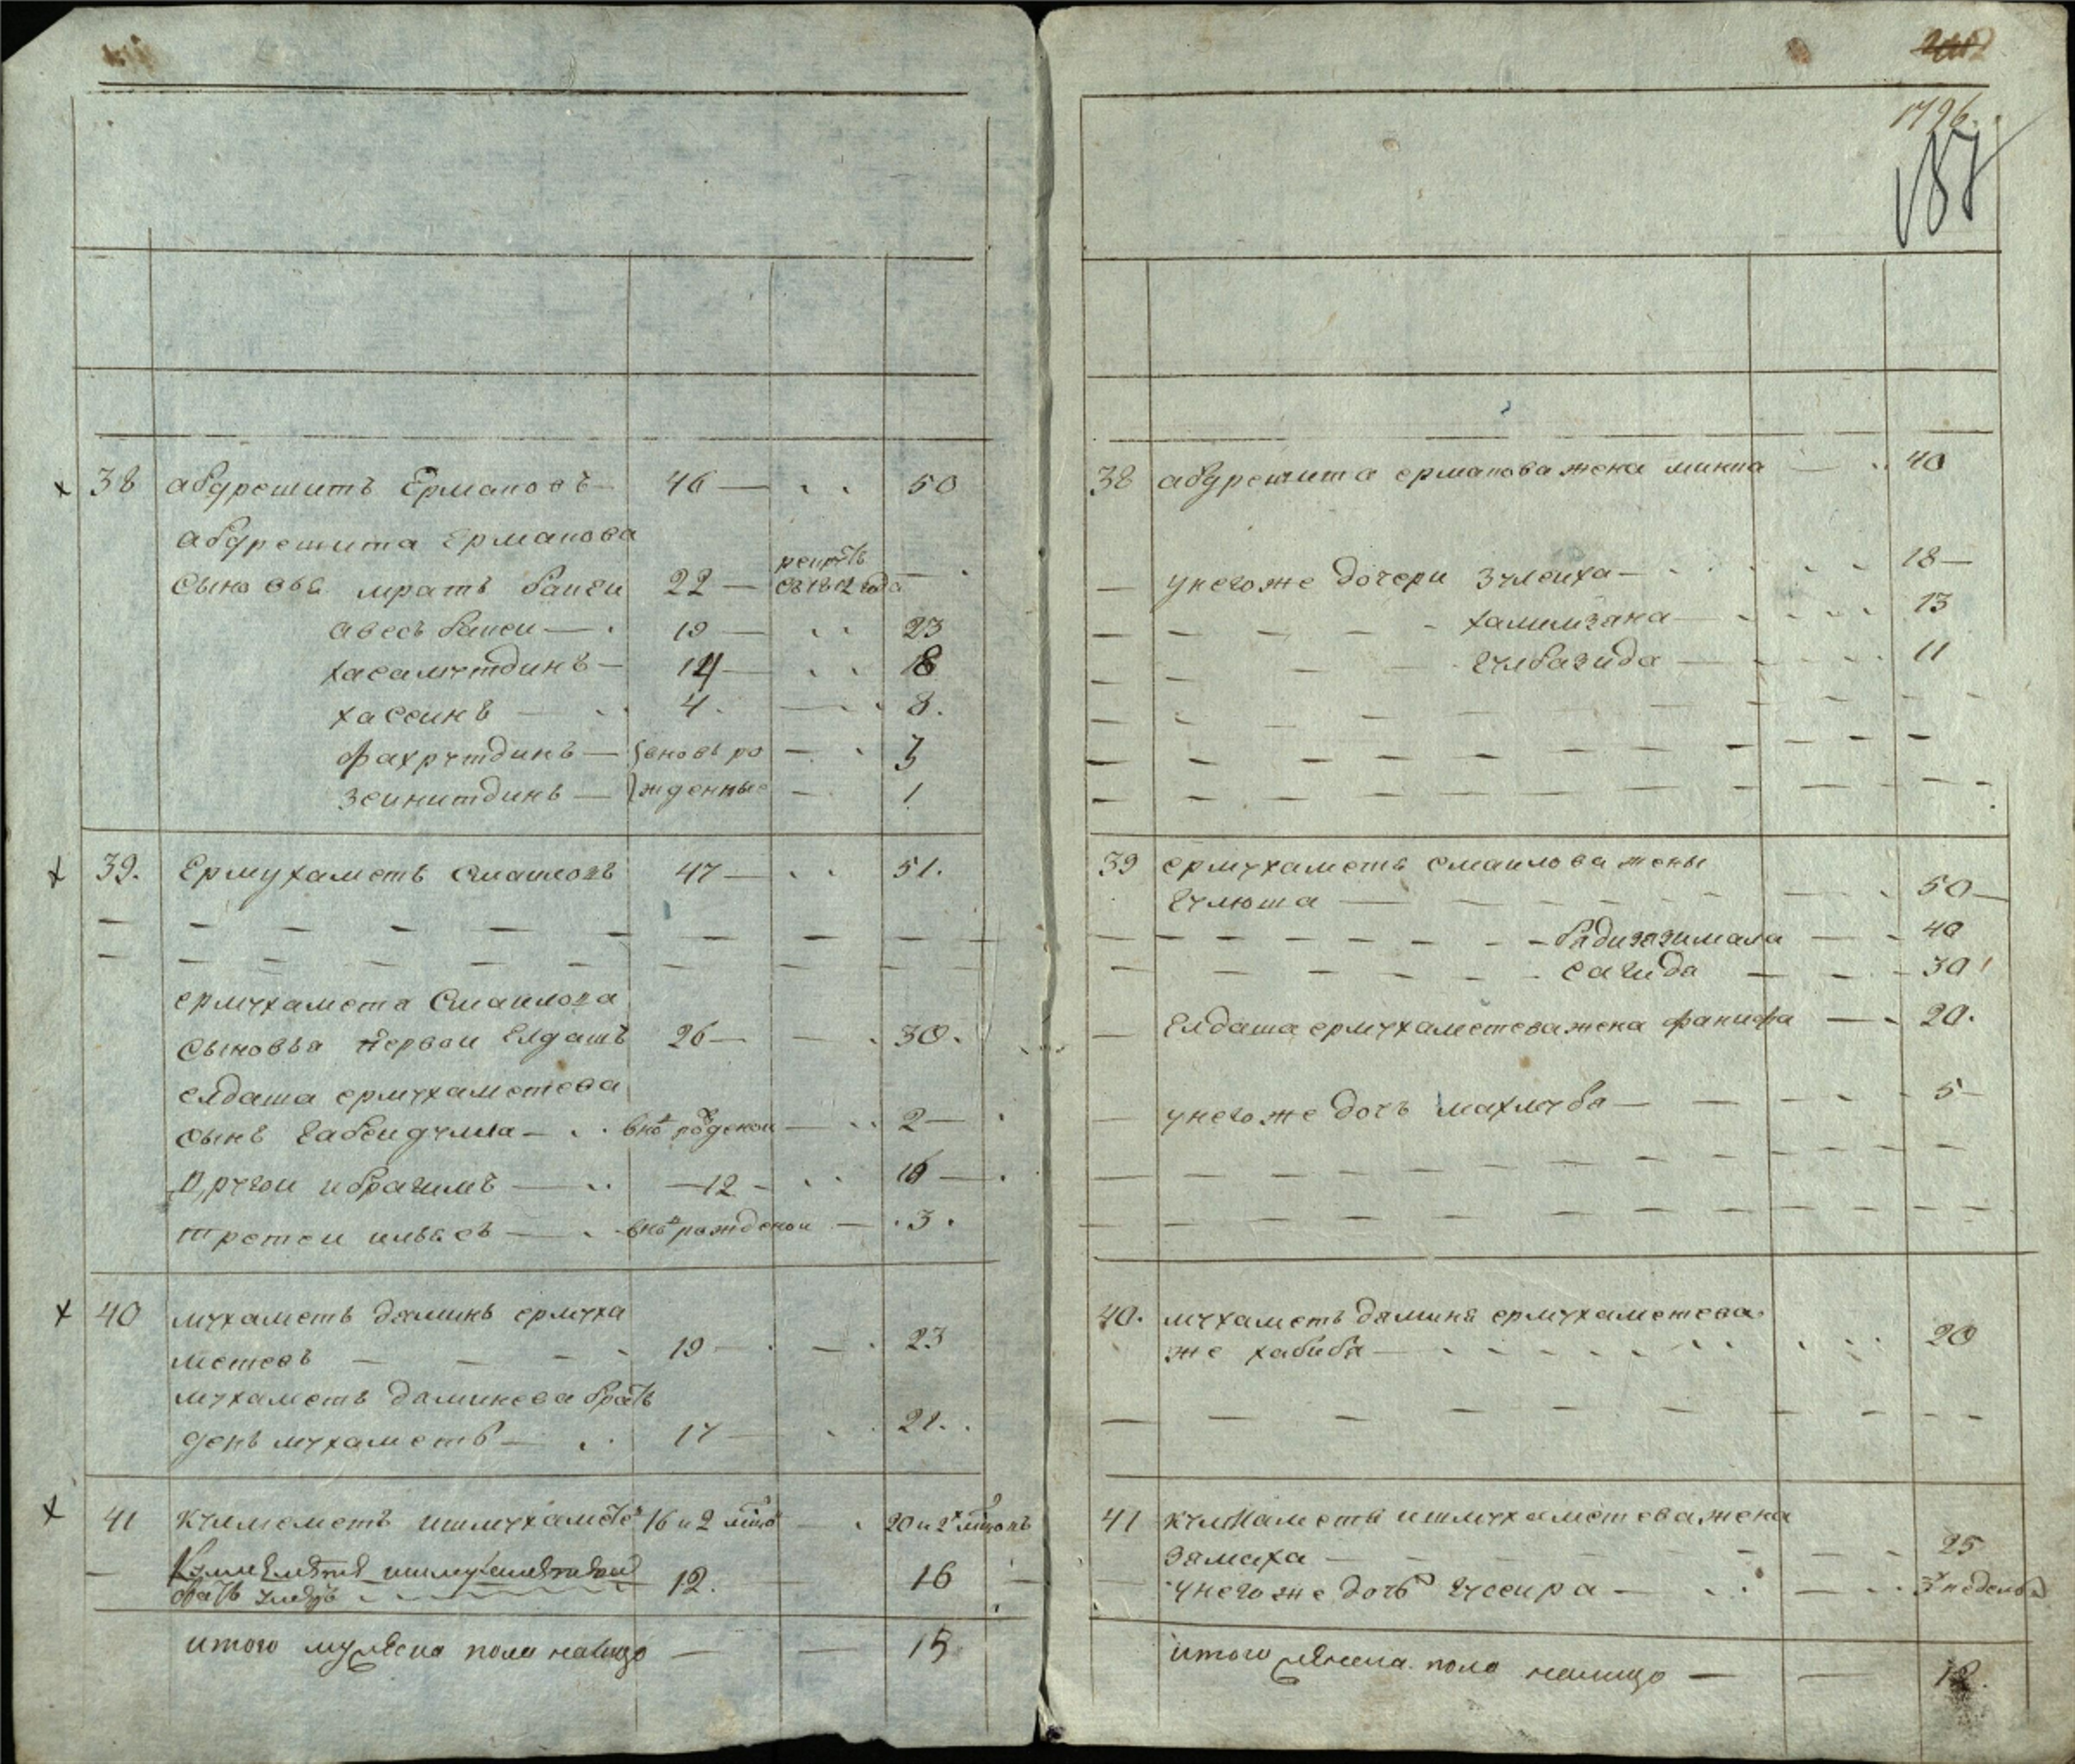 1796.
187
38 абдрешитъ Ермаковъ — 46 — 50
абдрешита Ермакова
сыновья мратъ баиги 22 —
съ 1812 года
авесъ баиги — 19 — 23
хасамутдинъ — 14 — 18
хассинъ — 4. — 8.
фахрутдинъ — вновь ро — 3
зеинитдинъ — жденные — 1
39. Ермухаметъ Смаиловъ 47 — 51.
ермухамета Смаилова
сыновья первои Елдашъ 26 — 30.
елдаша ермухаметева
сынъ габеидулла — внов роденои — 2 —
Другои ибрагимъ — 12 — 16 —
третеи ильясъ — внов рожденои — 3.
40 мухаметъ даминъ ермуха
метевъ — 19 — 23
мухаметъ даминева братъ
денъ мухаметъ — 17 — 21.
41 кулмаметъ ишмухамете 16 и 2 — 20 и 2
12. — 16
итого мужеска пола налицо — 15
38 абдрешита ермакова жена минна — 40
— у него же дочери зулеиха — 18 —
хамимзана — 13
гулбазида — 11
39 ермухаметъ смаилова жены
гулюша — 50 —
бадигазимала — 40
сагида — 30
— Елдаша ермухаметева жена фанифа — 20.
— у него же дочь махлуба — 5 —
40. мухаметъ даминя ермухаметева
же хабиба — 20
41 кулмаметъ ишмухаметева жена
замаха — 25
у него же дочь гусеира — 3 неделъ
итого женска пола налицо — 12.